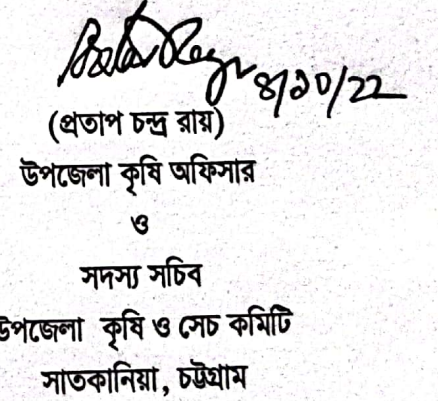 ৪/১০/২২
(প্রতাপ চন্দ্র রায়)
উপজেলা কৃষি অফিসার
ও
সদস্য সচিব
উপজেলা কৃষি ও সেচ কমিটি
সাতকানিয়া, চট্টগ্রাম